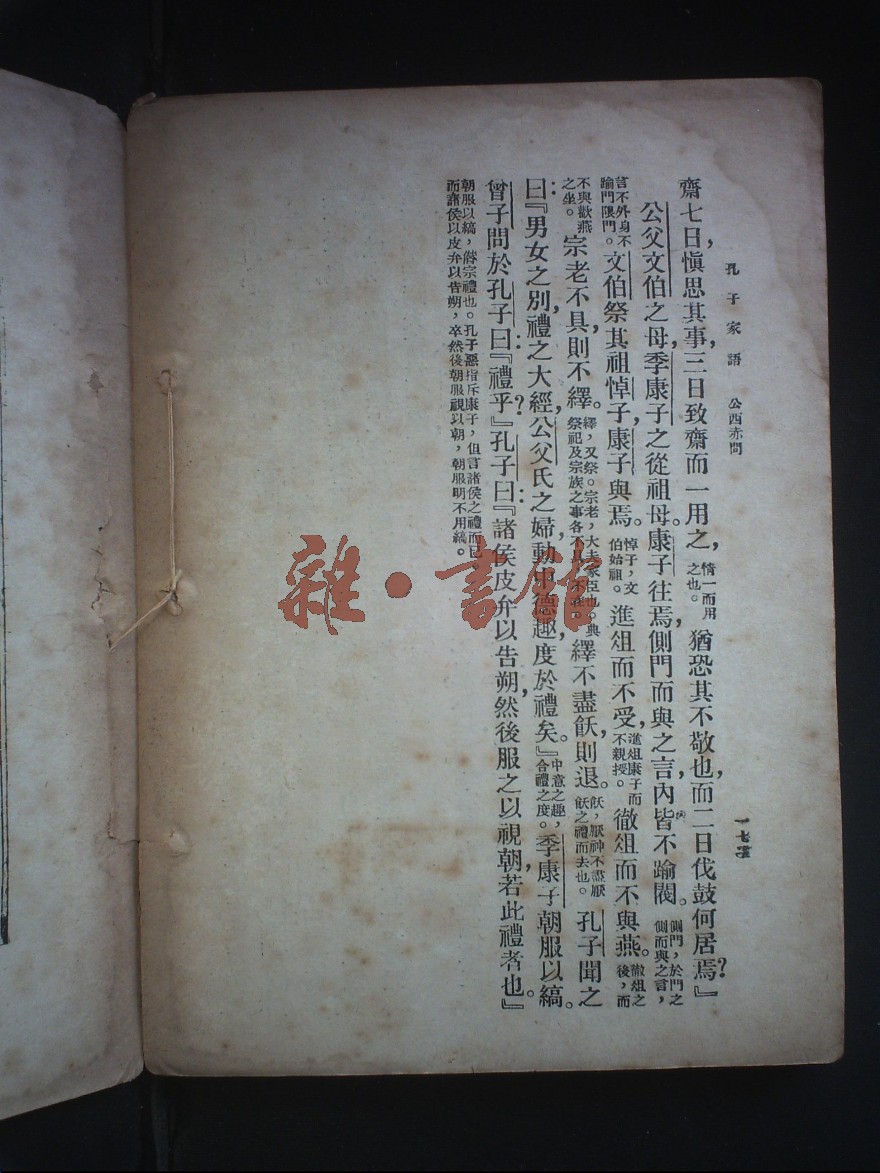 孔子家語　公西赤問
齋七日，慎思其事，三日致齋而一用之，情一而用之也。猶恐其不敬也，而二日伐鼓，何居焉？』
公父文伯之母，季康子之從祖母。康子往焉，側門而與之言，內皆不踰閾。側門，於門之側而與之言，
言不外身不踰門限門。文伯祭其祖悼子，康子與焉。悼子，文伯始祖。進俎而不受，進俎康子而不親授。徹俎而不與燕。徹俎之後，而
不與歡燕之坐。宗老不具，則不繹。繹，又祭。宗老，大夫家臣也。典祭祀及宗族之事各不具不在。繹不盡飫則退。飫，厭神不盡厭飫之禮而去也。孔子聞之
曰：『男女之別，禮之大經。公父氏之婦，動中德，趣度於禮矣。』中意之趣，合禮之度。季康子朝服以縞。
曾子問於孔子曰：『禮乎？』孔子曰：『諸侯皮弁以告朔，然後服之以視朝，若此禮者也。』
朝服以縞，僭宗禮也。孔子惡指斥康子，但言諸侯之禮而已
而諸侯以皮弁以告朔，卒然後朝服視以朝，朝服明不用縞。
雜·書館